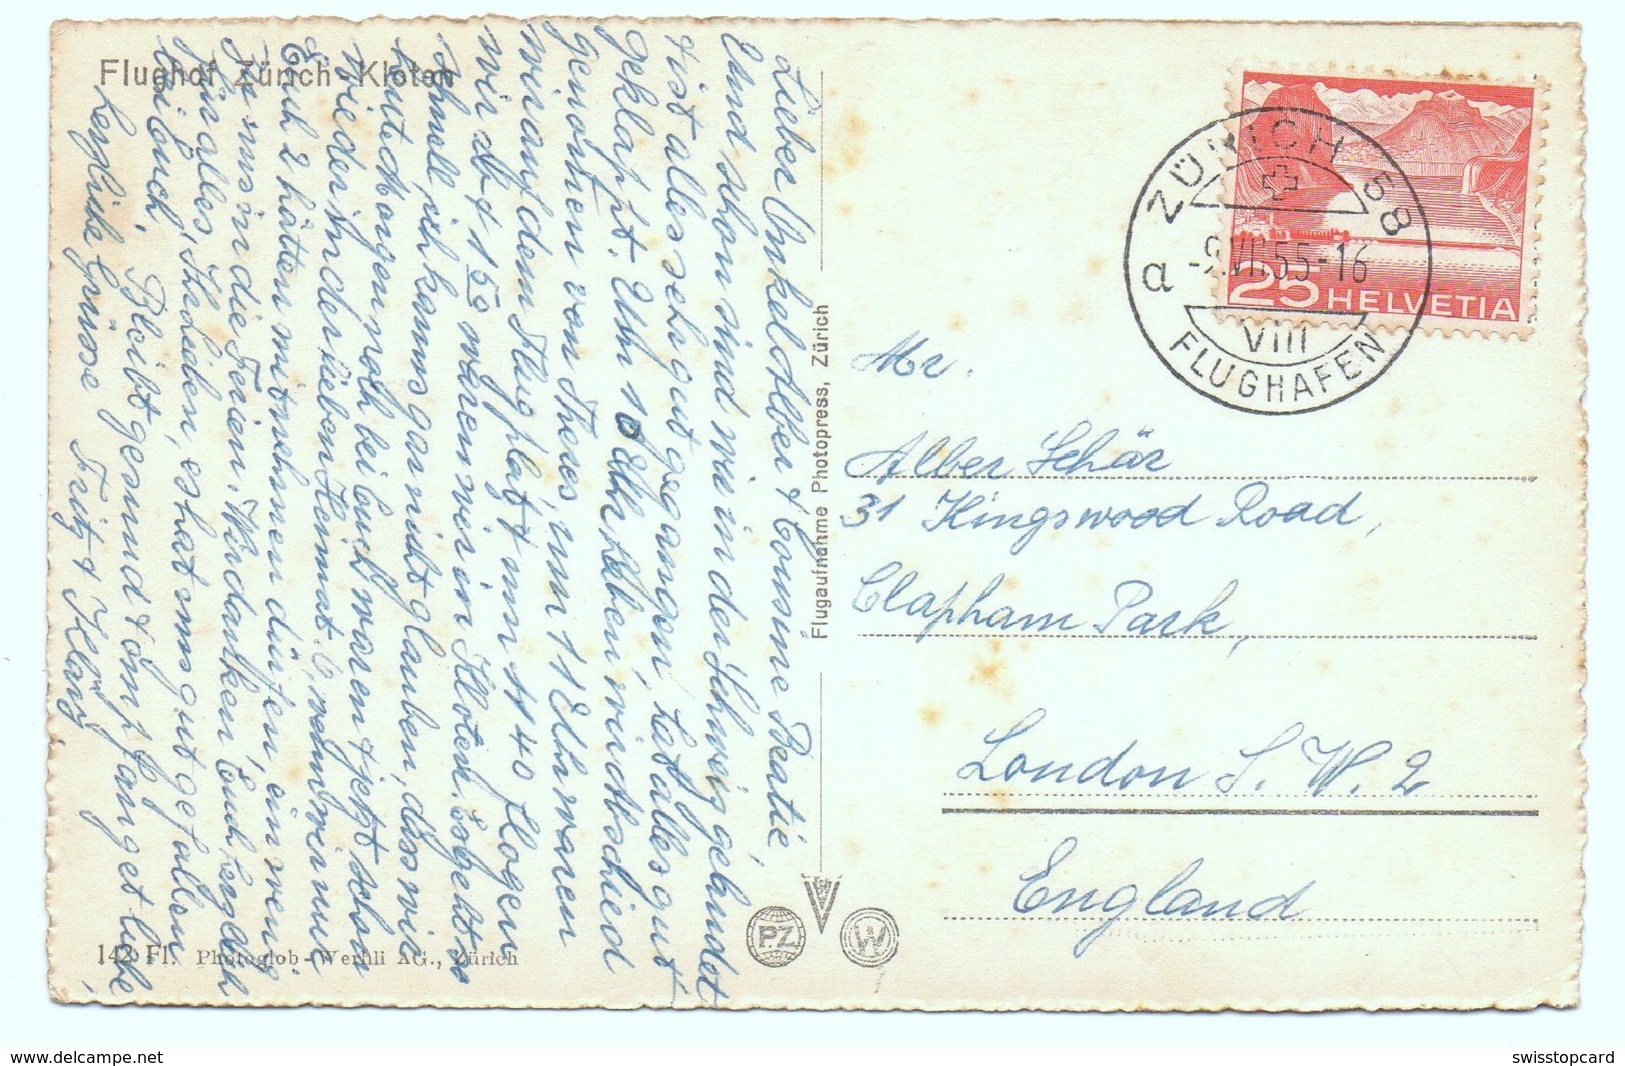 Flughof Zürich-Kloten
Lieber Onkel Alber & Cousine Beatie,
Und schon sind wir in der Schweiz gelandet
& ist alles sehr gut gegangen, hat alles gut
geklappt. Um 10 Uhr haben wir Abschied
genommen von Theres, um 11 Uhr waren
wir auf dem Flugplatz um 11 40 flogen
wir ab & 1 50 waren wir in Kloten. Es geht so
schnell, ich kann's gar nicht glauben, dass wir
heut Morgen noch bei Euch waren & jetzt schon
wieder in der lieben Heimat.
Euch 2 hätten mitnehmen dürfen, ein wenig
zu uns in die Ferien. Wir danken Euch herzlich
für alles, Ihr Lieben, es hat uns gut gefallen
bei Euch. Bleibt gesund & empfanget liebe,
herzliche Grüsse Fritz & Klary
142 Fl. Photoglob-Wehrli AG., Zürich
Flugaufnahme Photopress, Zürich
PZ
W
ZÜRICH 58
a -9.VII.55-16
VIII
FLUGHAFEN
25 HELVETIA
Mr.
Alber Schär
31 Kingswood Road,
Clapham Park,
London S.W.2
England
www.delcampe.net
swisstopcard